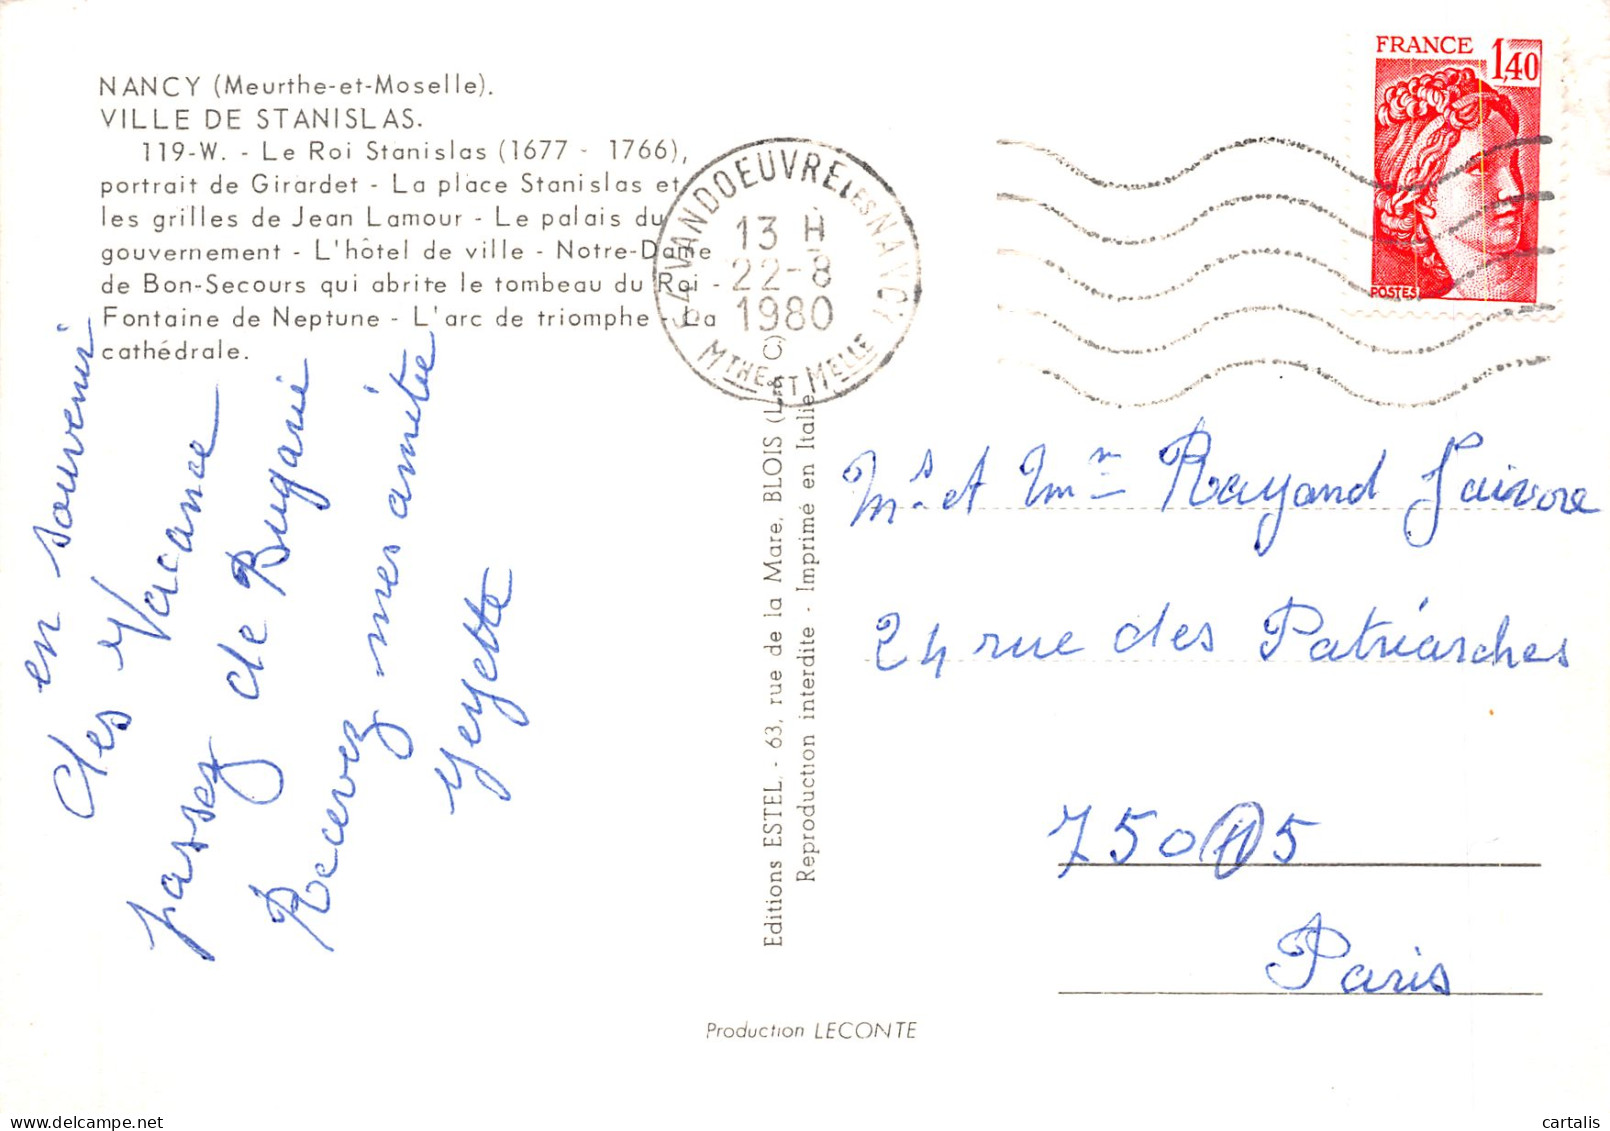 NANCY (Meurthe-et-Moselle).
VILLE DE STANISLAS.
119-W. - Le Roi Stanislas (1677 - 1766),
portrait de Girardet - La place Stanislas et
les grilles de Jean Lamour - Le palais du
gouvernement - L'hôtel de ville - Notre-Dame
de Bon-Secours qui abrite le tombeau du Roi -
Fontaine de Neptune - L'arc de triomphe - La
cathédrale.
en souvenir
des Vacance
passez de Bugarie
Recevez mes amitie
yeyette
54 VANDOEUVRE LES NANCY
13 H
22-8
1980
MTHE ET MELLE
FRANCE 1,40
POSTES
Editions ESTEL - 63, rue de la Mare, BLOIS (L. & C)
Reproduction interdite - Imprimé en Italie
Mrs et Mme Raymond
24 rue des Patriarches
75005
Paris
Production LECONTE
cartalis